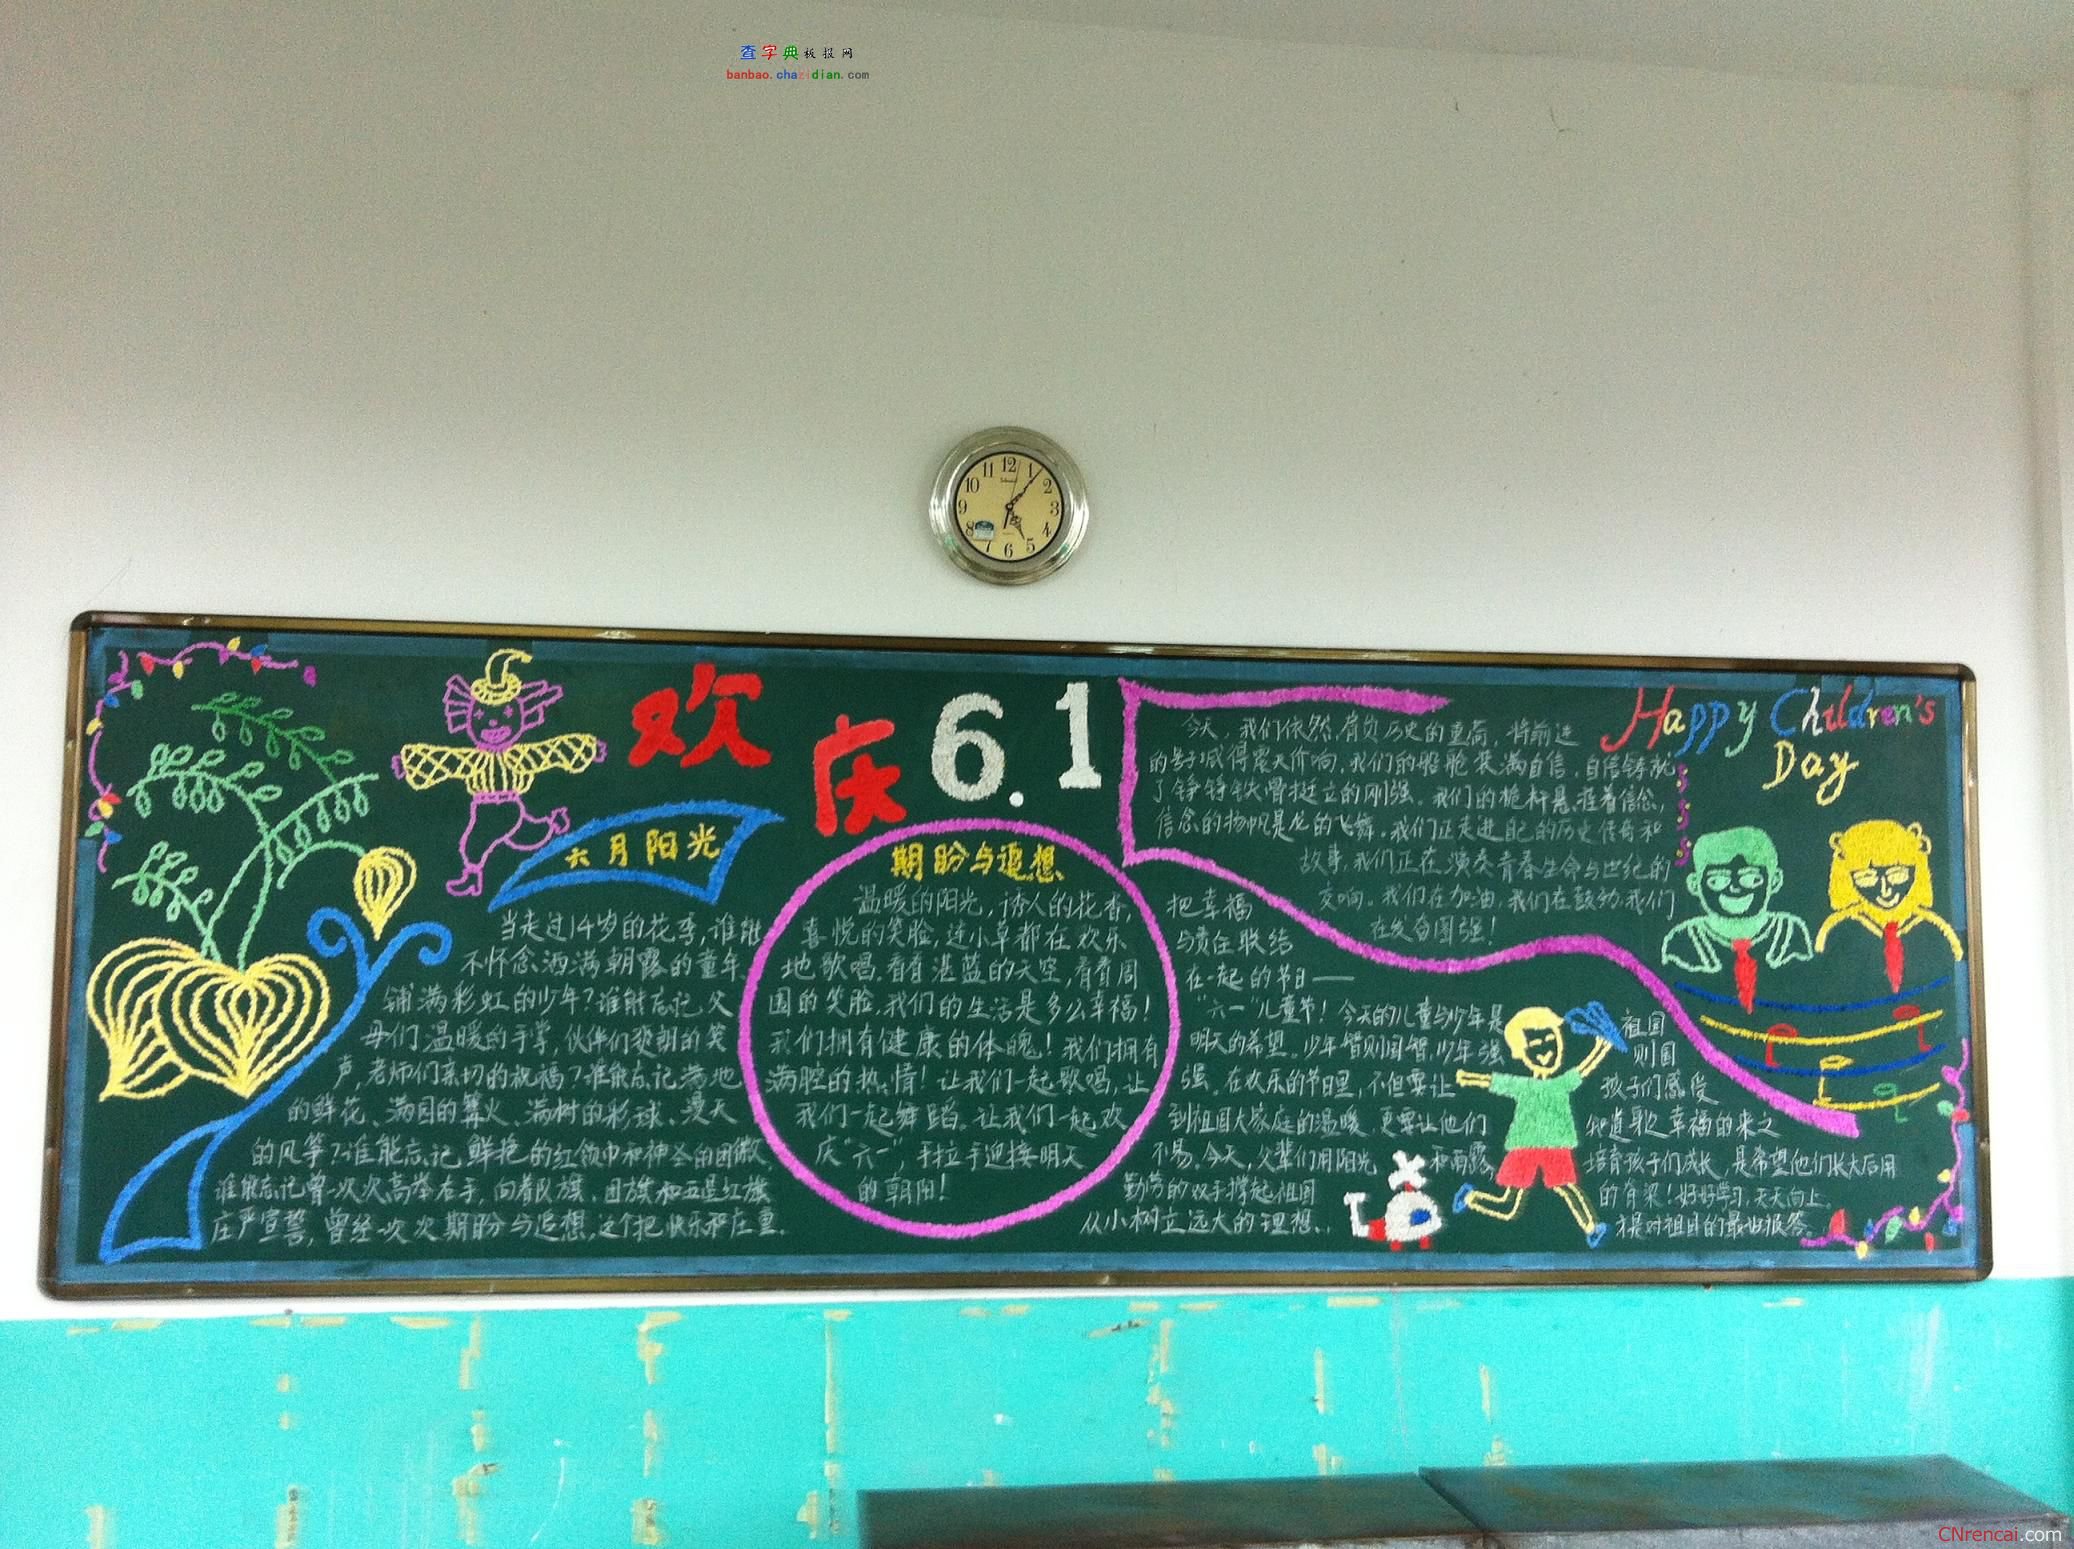 查字典板报网
banbao.chazidian.com
12
1
2
3
4
5
6
7
8
9
10
11
欢庆 6.1
Happy Children's
Day
六月阳光
当走过14岁的花季,谁能
不怀念洒满朝露的童年、
铺满彩虹的少年?谁能忘记父
母们温暖的手掌,伙伴们爽朗的笑
声,老师们亲切的祝福?谁能忘记满地
的鲜花、满园的篝火、满树的彩球、漫天
的风筝?谁能忘记鲜艳的红领巾和神圣的团徽,
谁能忘记曾一次次高举右手,向着队旗、团旗和五星红旗
庄严宣誓,曾经一次次期盼与追想,这个把快乐和庄重
期盼与追想
温暖的阳光,诱人的花香,
喜悦的笑脸,连小草都在欢乐
地歌唱,看看湛蓝的天空,看看周
围的笑脸,我们的生活是多么幸福!
我们拥有健康的体魄!我们拥有
满腔的热情!让我们一起歌唱,让
我们一起舞蹈。让我们一起欢
庆"六一",手拉手迎接明天
的朝阳!
今天,我们依然肩负历史的重荷,将前进
的号喊得震天价响,我们的船舱装满自信,自信铸就
了铮铮铁骨挺立的刚强。我们的桅杆悬挂着信念,
信念的扬帆是龙的飞舞。我们正走进自己的历史传奇和
故事,我们正在演奏青春生命与世纪的
交响。我们在加油,我们在鼓劲,我们
在发奋图强!
把幸福
与责任联结
在一起的节日——
"六一"儿童节!今天的儿童与少年是祖国
明天的希望。少年智则国智,少年强则国
强。在欢乐的节日里,不但要让孩子们感受
到祖国大家庭的温暖,更要让他们知道歌幸福的来之
不易。今天,父辈们用阳光和雨露培育孩子们成长,是希望他们长大后用
勤劳的双手撑起祖国的脊梁!好好学习,天天向上。
从小树立远大的理想,才是对祖国的最好报答。
CNrencai.com